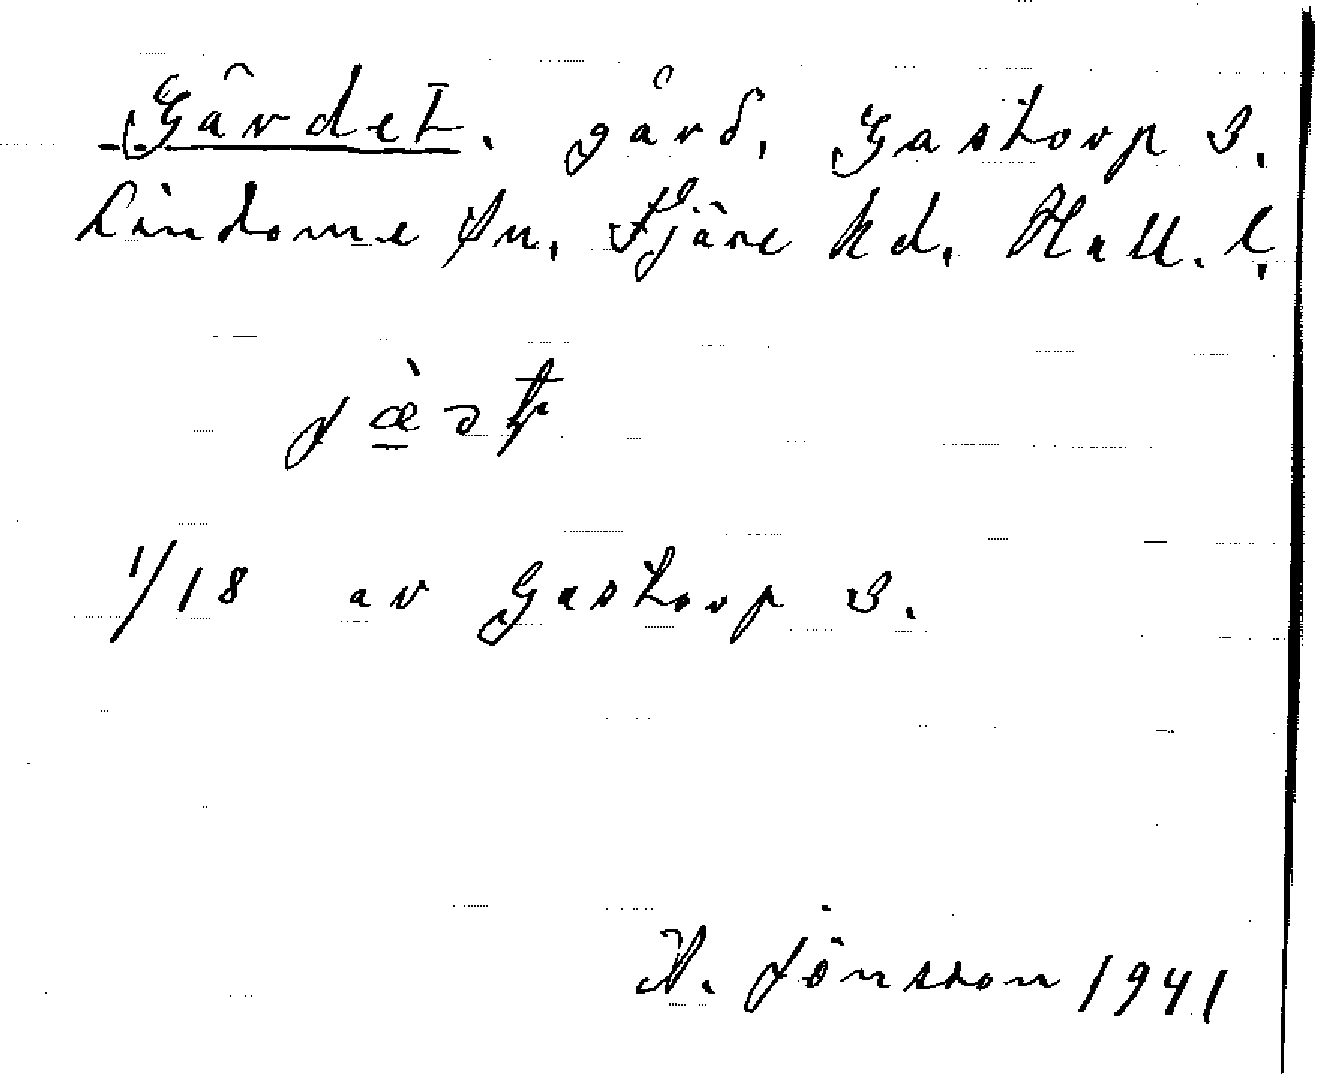 Gärdet. gård, Gastorp 3.
Lindome sn, Fjäre hd, Hall. l.
1/18 av Gastorp 3.
H. Jönsson 1941